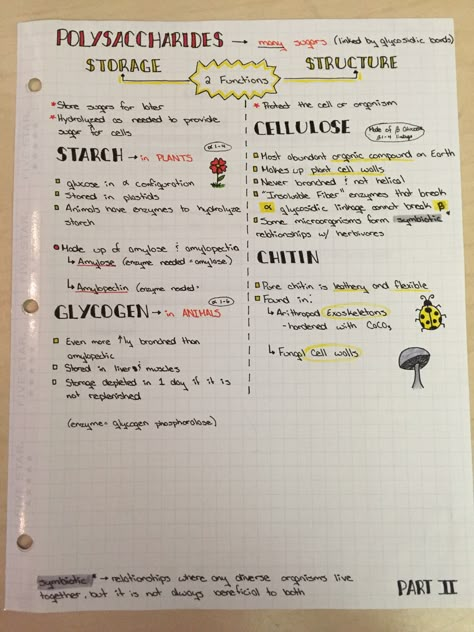 POLYSACCHARIDES → many sugars (linked by glycosidic bonds)
STORAGE
2 Functions
STRUCTURE
*Store sugars for later
*Hydrolyzed as needed to provide
sugar for cells
STARCH → in PLANTS
α 1-4
glucose in α configuration
Stored in plastids
Animals have enzymes to hydrolyze
starch
Made up of amylose & amylopectin
↳ Amylose (enzyme needed = amylase)
↳ Amylopectin (enzyme needed
GLYCOGEN → in ANIMALS
α 1-6
Even more ↑ly branched than
amylopectic
Stored in liver & muscles
Storage depleted in 1 day if it is
not replenished
(enzyme = glycogen phosphorolase)
* Protect the cell or organism
CELLULOSE
Made of β Glucose
β 1-4 linkage
Most abundant organic compound on Earth
Makes up plant cell walls
Never branched & not helical
"Insoluble Fiber" enzymes that break
α glycosidic linkage cannot break β
Some microorganisms form symbiotic*
relationships w/ herbivores
CHITIN
Pure chitin is leathery and flexible
Found in:
↳ Arthropod Exoskeletons
-hardened with CaCO₃
↳ Fungal Cell walls
symbiotic* → relationships where any diverse organisms live
together, but it is not always beneficial to both
PART II
FIVE STAR